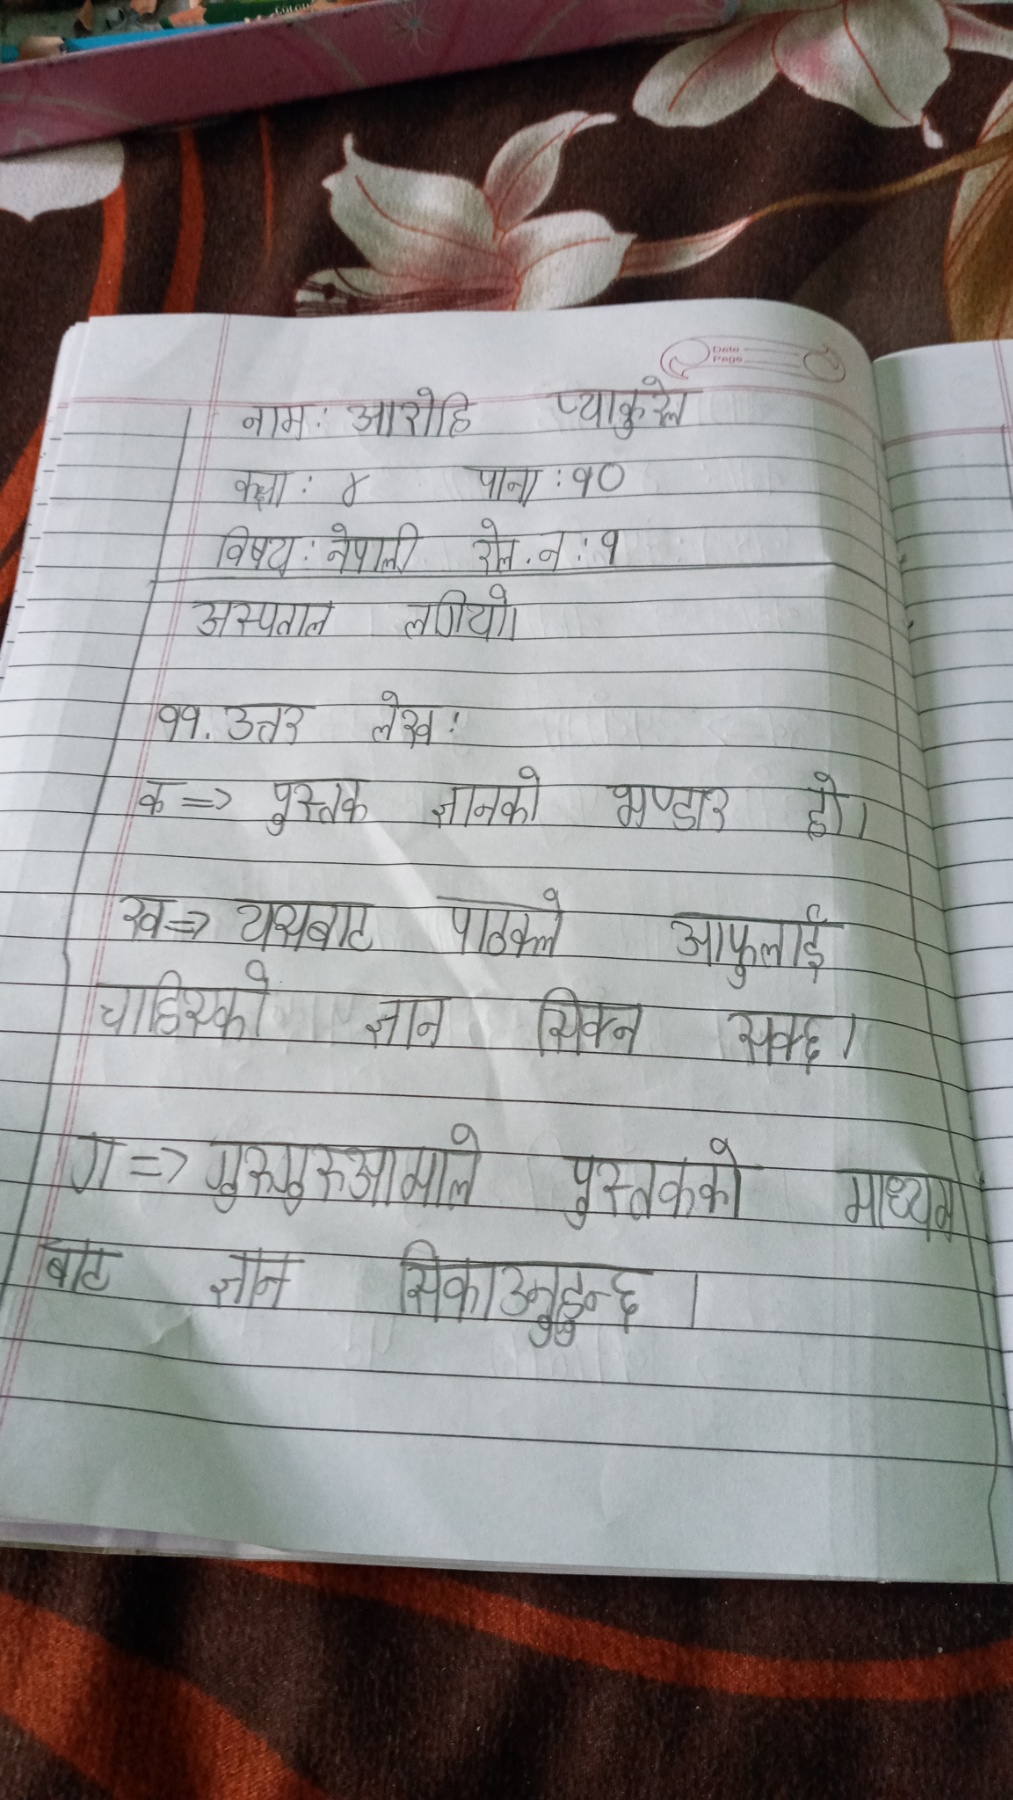 COLOU
Date
Page
नाम: आरोहि प्याकुरेल
कक्षा: ४ पाना: १०
विषय: नेपाली रोल.न: १
अस्पताल लगियो।
११. उत्तर लेख:
क⇒ पुस्तक ज्ञानको भण्डार हो।
ख⇒ यसबाट पाठकले आफुलाई
चाहिएको ज्ञान सिक्न सक्छ।
ग⇒ गुरुगुरुआमाले पुस्तकको माध्यम
बाट ज्ञान सिकाउनुहुन्छ।